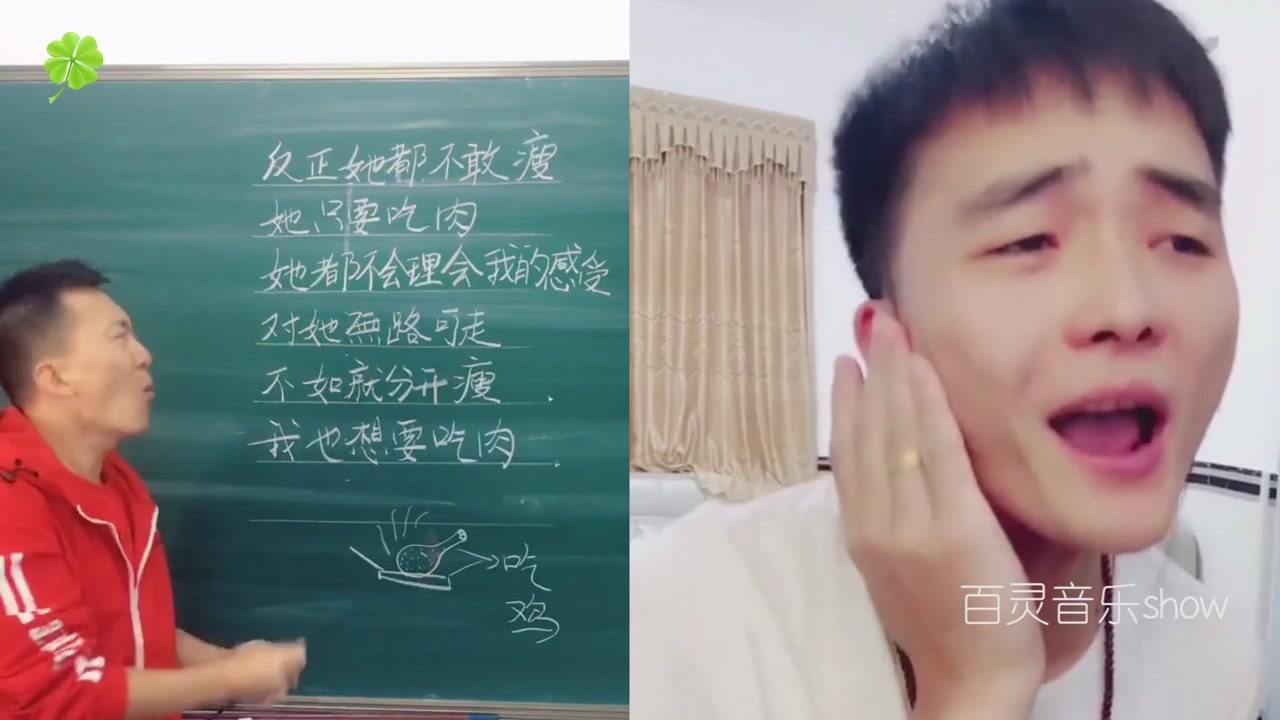 反正她都不敢瘦
她只要吃肉
她都不会理会我的感受
对她無路可走
不如就分开瘦
我也想要吃肉
吃
鸡
百灵音乐show